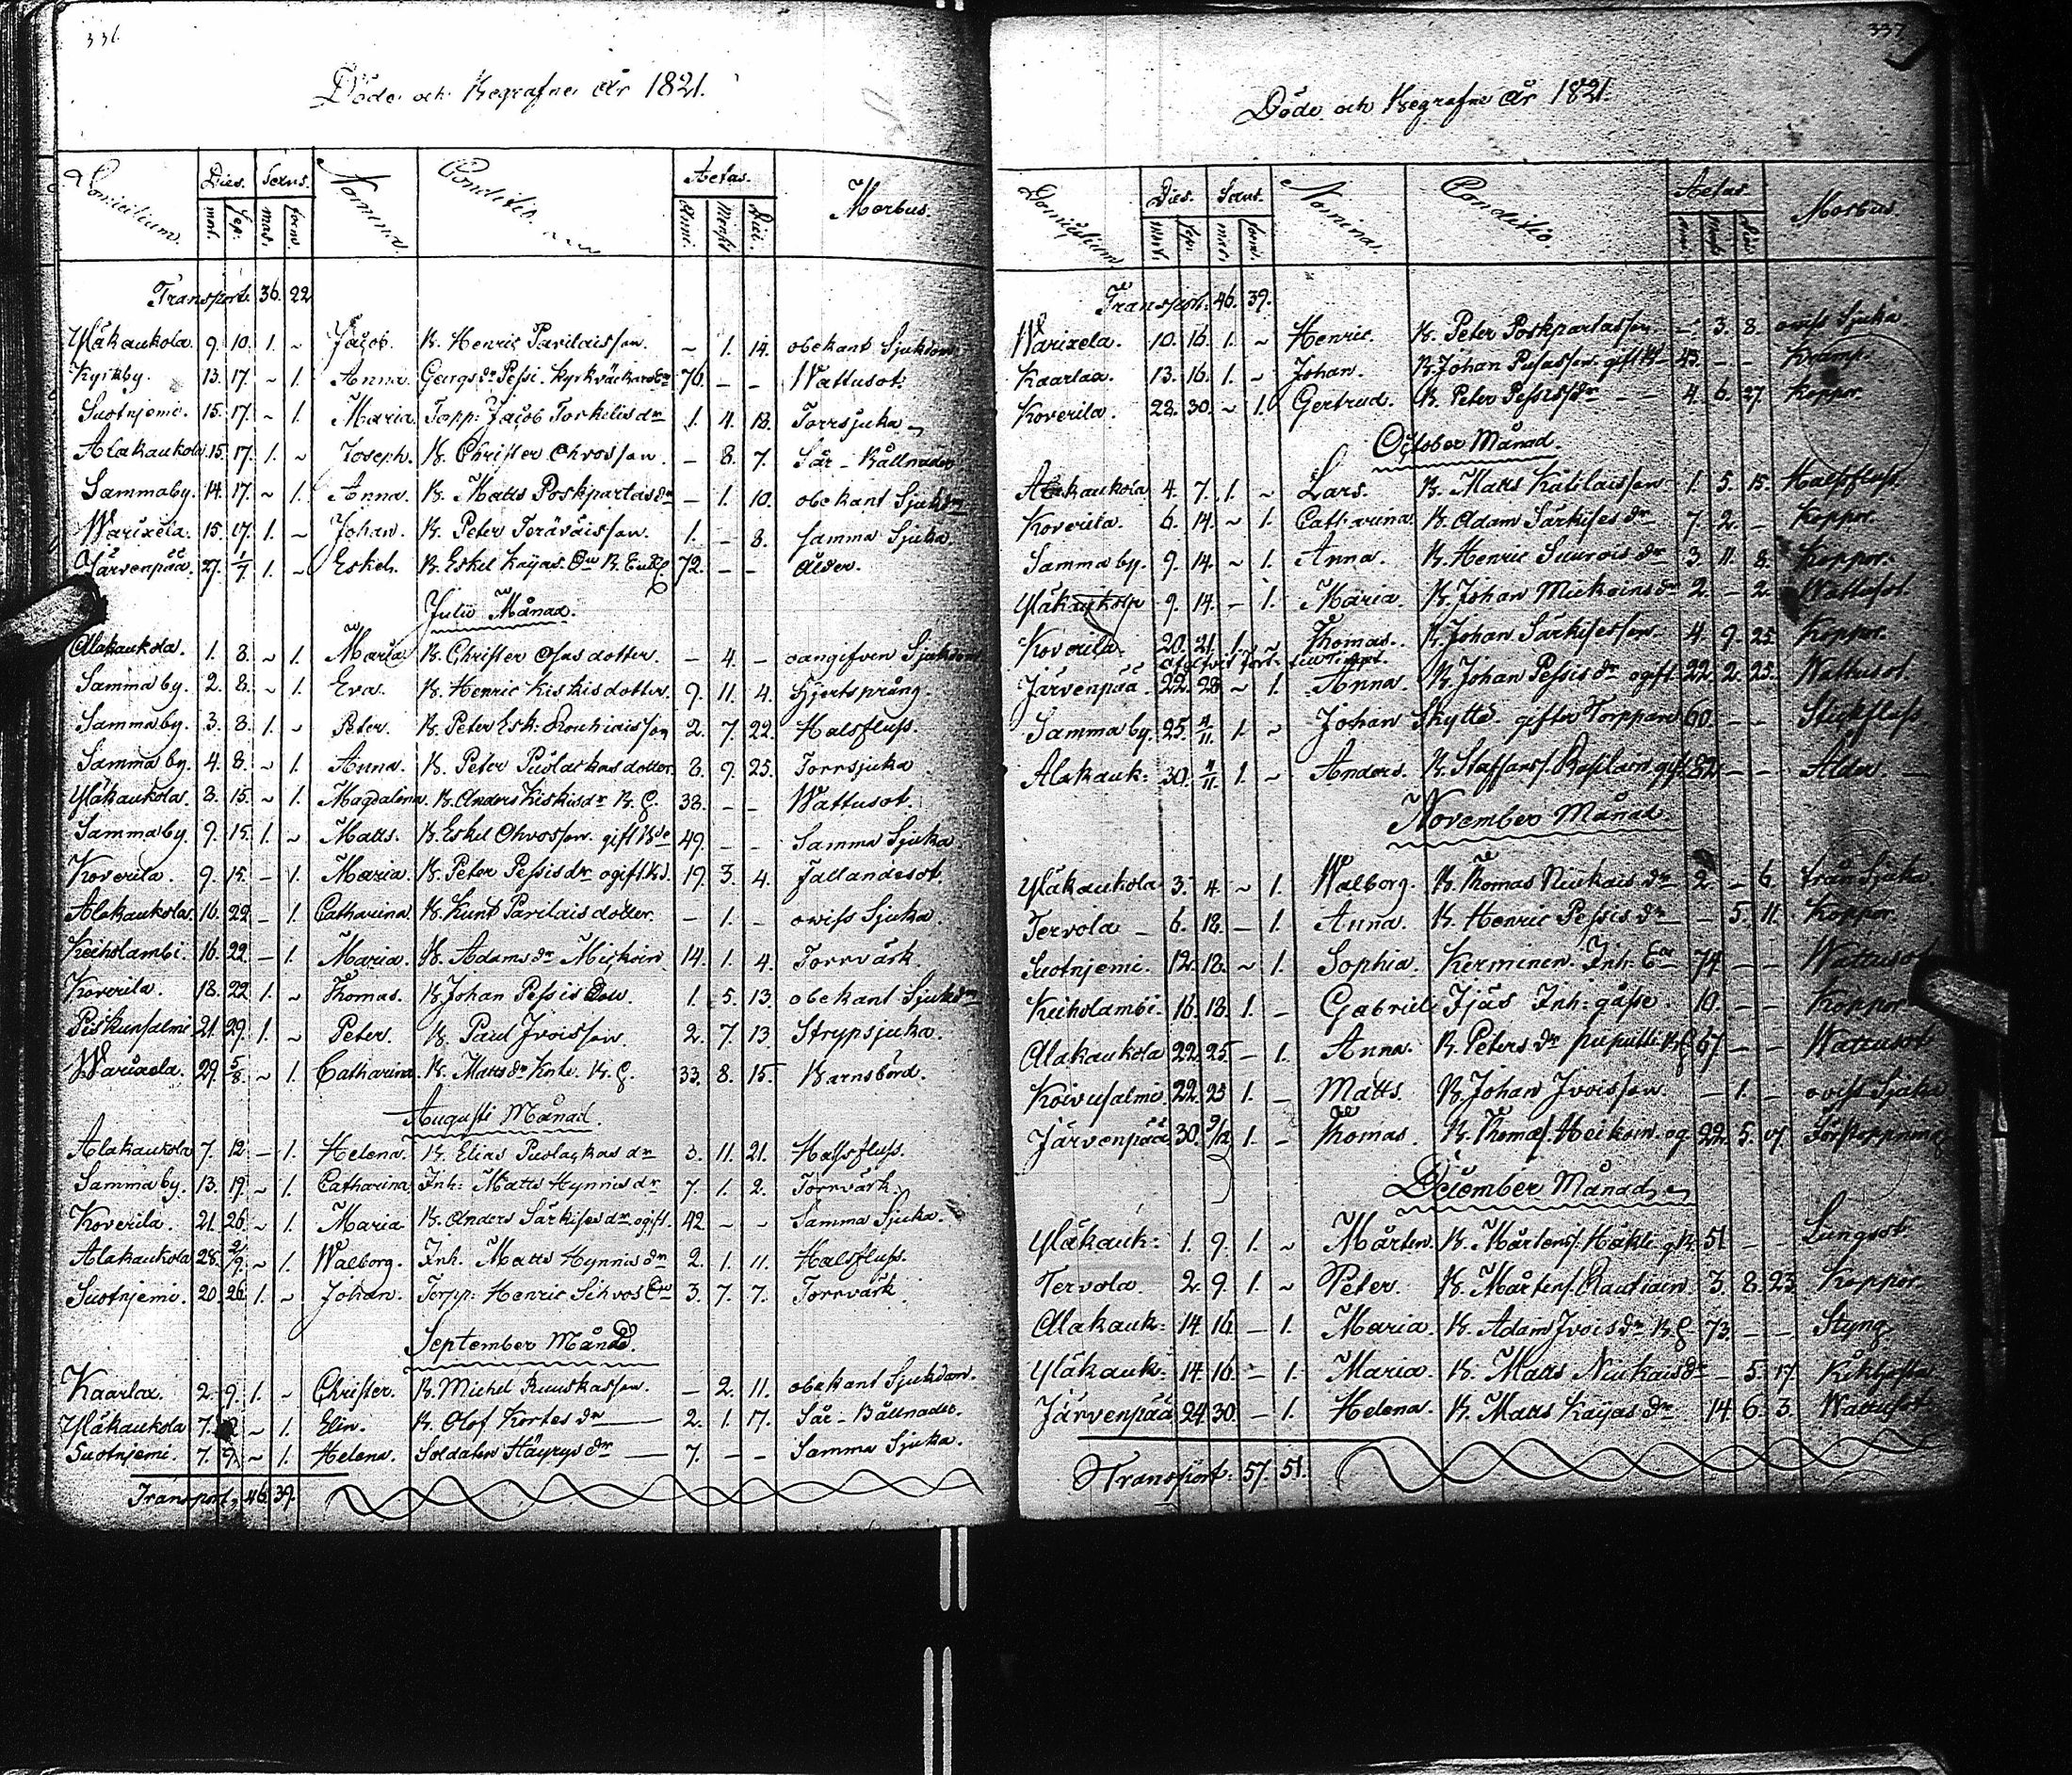 336.
Döde och Begrafne År 1821.
Domicilium. Dies. Sexus. Nomina. Conditio. Aetas. Morbus.
mort. sep. mas. foem. Anni. Mens. Dies.
Transport. 36. 22
Yläkaukola. 9. 10. 1. ~ Jacob. B. Henric Parilaisson. ~ 1. 14. obekant Sjukdom
Kyrkby. 13. 17. ~ 1. Anna. Georgs dr Pessi. 76. – – Wattusot.
Suotnjemi. 15. 17. ~ 1. Maria. Torp: Jacob Torkilis dr 1. 4. 18. Torrsjuka
Alakaukola. 15. 17. 1. ~ Joseph. B. Christer Ohvosson. – 8. 7. Sår-Bållnader
Sammaby. 14. 17. ~ 1. Anna. B. Matts Poskpartas dr – 1. 10. obekant Sjukdm
Warixela. 15. 17. 1. ~ Johan. B. Peter Teräväisson. 1. – 8. samma Sjuka.
Järvenpää. 27. 1/7 1. ~ Eskel. B. Eskel Kayas 72. – – Ålder.
Julii Månad.
Alakaukola. 1. 8. ~ 1. Maria B. Christer Ohvos dotter. – 4. – oangifven Sjukdom
Samma by. 2. 8. ~ 1. Eva. B. Henric Kiskis dotter. 9. 11. 4. Hjertsprång.
Samma by. 3. 8. 1. ~ Peter. B. Peter Esk: Rouhiaisson 2. 7. 22. Halsfluss.
Samma by. 4. 8. ~ 1. Anna. B. Peter Puolackas dotter. 8. 9. 25. Torrsjuka
Yläkaukola. 8. 15. ~ 1. Magdalena. B. Anders Kiskis dr B. E. 38. – – Wattusot
Samma by. 9. 15. 1. ~ Matts. B. Eskel Ohvosson. gift Bde 49. – – Samma Sjuka
Koverila. 9. 15. – 1. Maria. B. Peter Pessis dr ogift. 19. 3. 4. Fallandesot.
Alakaukola. 16. 22. – 1. Catharina. B. Knut Parilais dotter. – 1. – oviss Sjuka.
Keiholambi. 16. 22. – 1. Maria. B. Adams dr Mickoin. 14. 1. 4. Torrvärk.
Koverila. 18. 22 1. ~ Thomas. B. Johan Pessis 1. 5. 13. obekant Sjukdm
Piskunsalmi 21. 29. 1. ~ Peter. B. Paul Ivoisson. 2. 7. 13. Strypsjuka.
Warixela. 29. 5/8. ~ 1. Catharina. B. Matts dr B. E. 33. 8. 15. Barnsbörd.
Augusti Månad.
Alakaukola 7. 12 – 1. Helena. B. Elias Puolackas dr 3. 11. 21. Halsfluss.
Samma by. 13. 19. ~ 1. Catharina Inh: Matts Hynnis dr 7. 1. 2. Torrvärk.
Koverila. 21. 26. ~ 1. Maria B. Anders Särkises dr ogift. 42. – – Samma Sjuka.
Alakaukola 28. 2/9. ~ 1. Walborg. Inh. Matts Hynnis dr 2. 1. 11. Halsfluss.
Suotnjemi. 20. 26 1. ~ Johan. Torpp: Henric Sihvos 3. 7. 7. Torrvärk.
September Månad.
Kaarlax. 2. 9. 1. ~ Christer. B. Michel Ruuskasson. – 2. 11. obekant Sjukdom.
Yläkaukola 7. ~ 1. Elin. B. Olof Kortes dr 2. 1. 17. Sår-Bållnader.
Suotnjemi. 7. 9. ~ 1. Helena. Soldaten Häyrys dr 7. – – Samma Sjuka.
Transport. 46. 39.
337
Döde och Begrafne År 1821.
Domicilium. Dies. Sexus. Nomina. Conditio. Aetas. Morbus.
mort. sep. mas. foem. Anni. Mens. Dies.
Transport: 46. 39.
Warixela. 10. 16. 1. ~ Henric. B. Peter Poskpartasson – 3. 8. oviss Sjuka.
Kaarlax. 13. 16. 1. ~ Johan. B. Johan gift 43. – – Kramp.
Koverila. 28. 30. ~ 1. Gertrud. B. Peter Pessis dr 4. 6. 27. Koppor.
October Månad.
Alakaukola 4. 7. 1. ~ Lars. B. Matts Kätiläisson 1. 5. 15. Halsfluss.
Koverila. 6. 14. ~ 1. Catharina. B. Adam Särkises dr 7. 2. – Koppor.
Samma by. 9. 14. ~ 1. Anna. B. Henric Suurois dr 3. 11. 8. Koppor.
Yläkaukola 9. 14. – 1. Maria. B. Johan Mickoins dr 2. – 2. Wattusot.
Koverila. 20. 21. 1. ~ Thomas. B. Johan Särkisesson. 4. 9. 25. Koppor.
Järvenpää 22. 28 ~ 1. Anna. B. Johan Pessis dr ogift. 22. 2. 25. Wattusot
Samma by. 25. 4/11. 1. ~ Johan Skytte. gifter Torppare 60. – – Stickfluss.
Alakauk: 30. 4/11. 1. ~ Anders. B. Staffans. gift 82 – – Ålder
November Månad.
Yläkaukola 3. 4. ~ 1. Walborg. B. Thomas Niukais dr 2. – 6. trån Sjuka.
Tervola – 6. 18. – 1. Anna. B. Henric Pessis dr – 5. 11. Koppor.
Suotnjemi. 12. 18. ~ 1. Sophia. Kerminen. Inh: 74. – – Wattusot
Keiholambi. 16. 18. 1. – Gabriel Ijäs Inh: gosse. 10. – – Koppor
Alakaukola 22. 25. – 1. Anna. B. Peters dr Puputti. B. E. 67. – – Wattusot
Koivusalmi. 22. 25 1. – Matts. B. Johan Ivoisson. – 1. – oviss Sjuka
Järvenpää 30. 9/12. 1. – Thomas. B. Thomas. Heikoin. og. 22. 5. 17. Förstoppning
December Månad
Yläkauk: 1. 9. 1. ~ Mårten. B. Mårtens. Häkli g. B. 51 – – Lungsot.
Tervola. 2. 9. 1. ~ Peter. B. Mårtens. Rautiain. 3. 8. 23. Koppor.
Alakauk: 14. 16. – 1. Maria. B. Adam Ivois dr B. E. 73. – – Styng
Yläkauk: 14. 16. – 1. Maria. B. Matts Niukais dr – 5. 17. Kikhosta
Järvenpää 24. 30. – 1. Helena. B. Matts Kayas dr 14. 6. 3. Wattusot
Transport: 57. 51.